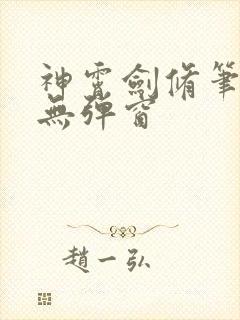 神霄劍脩筆
無彈窗
趙一弘